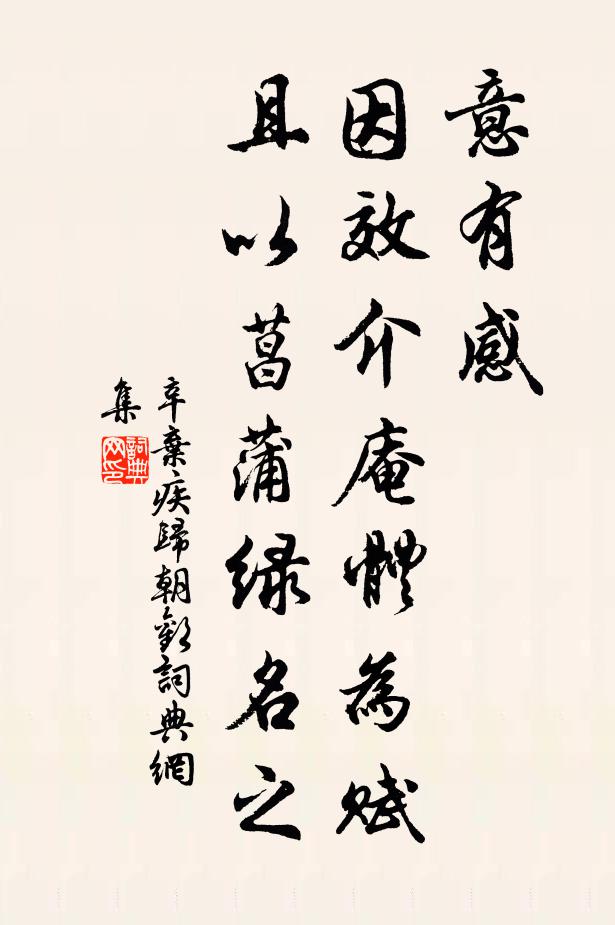 意有感
因效介庵體為賦
且以菖蒲绿名之
辛棄疾歸朝歡詞典網
集
詞典網印